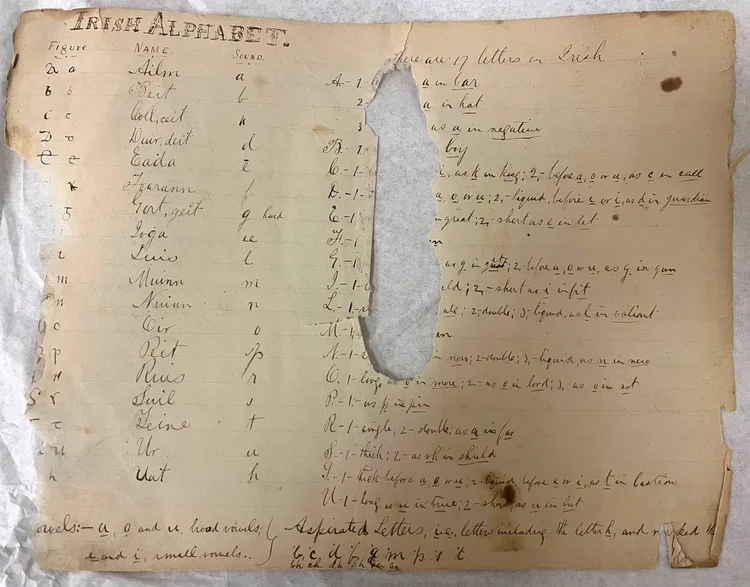 IRISH ALPHABET.
Figure NAME. SOUND. There are 17 letters in Irish
a a Ailm a A-1 a in bar
b b Beit b 2 a in hat
c c Coll, cait k 3 as a in negative
D d Duir, deit d B-1 boy
E e Eada ē C-1 as k in king; 2,-before a, o or u, as c in call
Fearann f D-1 a, o or u; 2,-liquid, before e or i, as d in guardian
g Gort, geit g hard E-1 in great; 2,-short as e in let
Ioga ee F-1
l Luis l G-1 as g in get; 2,-before a, o or u, as g in gun
m Muinn m I-1 2,-short as i in fit
n Nuinn n L-1 2-double; 3,-liquid, as l in valiant
o Oir o M-1
p p Peit p N-1 in now; 2-double; 3,-liquid, as n in new
r Ruis r O-1-long, as o in more; 2-as o in lord; 3,-as o in not
S s Suil s P-1-as p in pin
t Teine t R-1-single; 2-double, as r in far
u U Ur u S-1-thick; 2-as sh in shield
h Uat h T-1-thick before a, o or u; 2-liquid, before e or i, as t in bastion
U-1-long, as u in true; 2-short, as u in but
vowels:-a, o and u, broad vowels; Aspirated Letters, i.e. letters including the letter h, and marked th
e and i, small vowels.. b, c, d, f, g, m, p, s, t
bh ch dh